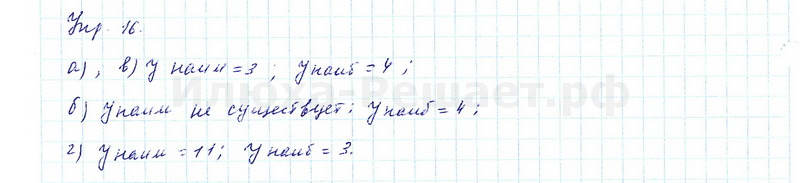 Упр. 16.
а), в) у наим = 3 ; у наиб = 4 ;
Илюха-Решает.рф
б) у наим не существует; у наиб = 4 ;
г) у наим = 11; у наиб = 3.